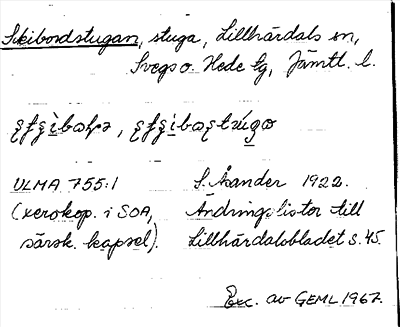 Skibordstugan, stuga, Lillhärdals sn,
Svegs o. Hede tg, Jämtl. l.
ULMA 755:1 S. Åsander 1922.
(xerokop. i SOA, Ändringslistor till
särsk. kapsel). Lillhärdalsbladet s. 45.
Exc. av GEML 1967.